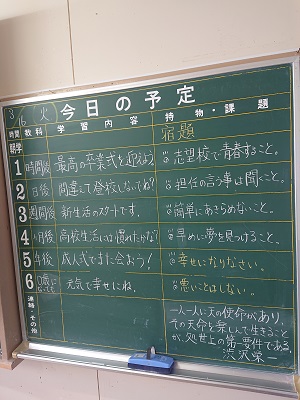 3/16 火 今日の予定
時間 教科 学習内容 持物・課題
朝学 宿題
1 時間後 最高の卒業式を迎えよう ☺志望校で青春すること。
2 日後 間違って登校しないでね? ☺担任の言う事は聞くこと。
3 週間後 新生活のスタートです。 ☺簡単にあきらめないこと。
4 ヶ月後 高校生活には慣れたかな? ☺早めに夢を見つけること。
5 年後 成人式でまた会おう! ☺幸せになりなさい。
6 0歳になっても 元気で幸せにね。 ☺悪いことはしない。
連絡・その他
一人一人に天の使命があり、
その天命を楽しんで生きること
が、処世上の第一要件である。
渋沢栄一